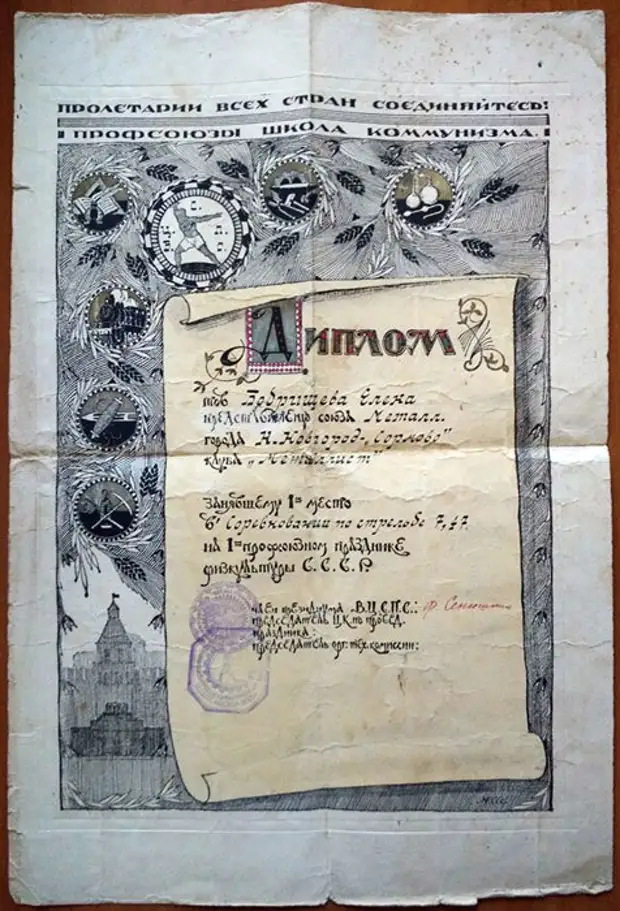 ПРОЛЕТАРИИ ВСЕХ СТРАН СОЕДИНЯЙТЕСЬ!
ПРОФСОЮЗЫ ШКОЛА КОММУНИЗМА.
ДИПЛОМ
тов Бобрищева Елена
представителю союза Металл.
города Н. Новгород-„Сормово"
клуба „Металлист"
занявшему 1ое место
в Соревновании по стрельбе 7,47
на 1ом профсоюзном празднике
физкультуры С.С.С.Р.
член президиума В.Ц.С.П.С.:
председатель Ц.К. по провед.
праздника:
председатель орг. тех. комиссии: